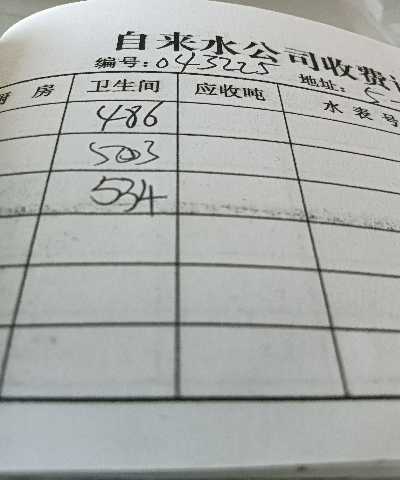 自来水公司收费
编号:043225 地址: 5-
厨房 卫生间 应收吨 水表号
486
503
534